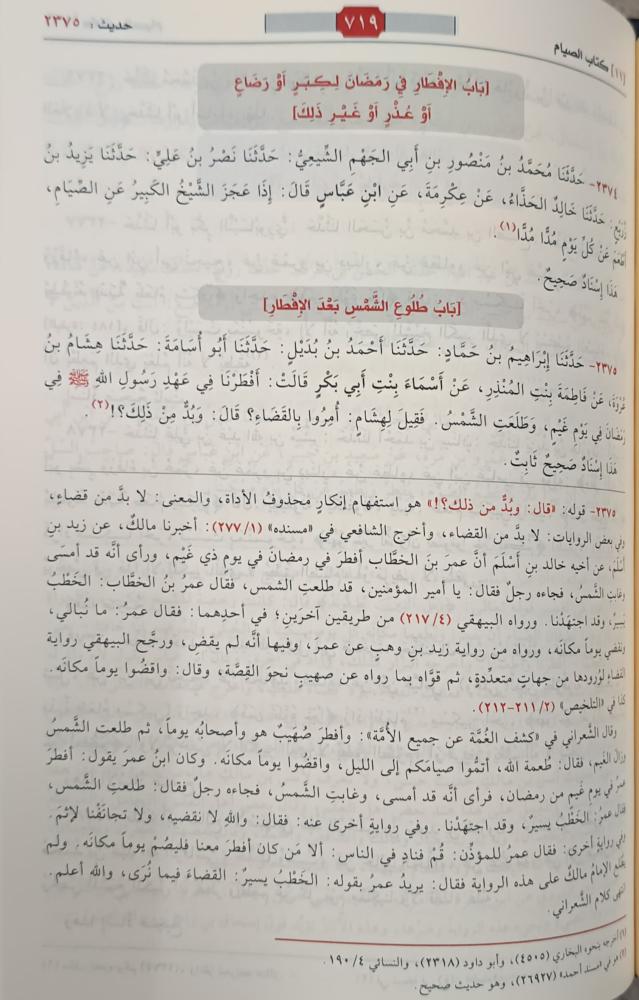 [١١] كتاب الصيام ٧١٩ حديث : ٢٣٧٥
[بَابُ الإِفْطَارِ فِي رَمَضَانَ لِكِبَرٍ أَوْ رَضَاعٍ
أَوْ عُذْرٍ أَوْ غَيْرِ ذَلِكَ]
٢٣٧٤- حَدَّثَنَا مُحَمَّدُ بنُ مَنْصُورِ بنِ أَبِي الجَهْمِ الشِّيعِيُّ: حَدَّثَنَا نَصْرُ بنُ عَلِيٍّ: حَدَّثَنَا يَزِيدُ بنُ
زُرَيْعٍ: حَدَّثَنَا خَالِدٌ الحَذَّاءُ، عَنْ عِكْرِمَةَ، عَنِ ابْنِ عَبَّاسٍ قَالَ: إِذَا عَجَزَ الشَّيْخُ الكَبِيرُ عَنِ الصِّيَامِ،
أَطْعَمَ عَنْ كُلِّ يَوْمٍ مُدًّا مُدًّا(١).
هَذَا إِسْنَادٌ صَحِيحٌ.
[بَابُ طُلُوعِ الشَّمْسِ بَعْدَ الإِفْطَارِ]
٢٣٧٥- حَدَّثَنَا إِبْرَاهِيمُ بنُ حَمَّادٍ: حَدَّثَنَا أَحْمَدُ بنُ بُدَيْلٍ: حَدَّثَنَا أَبُو أُسَامَةَ: حَدَّثَنَا هِشَامُ بنُ
عُرْوَةَ، عَنْ فَاطِمَةَ بِنْتِ المُنْذِرِ، عَنْ أَسْمَاءَ بِنْتِ أَبِي بَكْرٍ قَالَتْ: أَفْطَرْنَا فِي عَهْدِ رَسُولِ اللهِ ﷺ فِي
رَمَضَانَ فِي يَوْمِ غَيْمٍ، وَطَلَعَتِ الشَّمْسُ. فَقِيلَ لِهِشَامٍ: أُمِرُوا بِالقَضَاءِ؟ قَالَ: وَبُدٌّ مِنْ ذَلِكَ؟!(٢)
هَذَا إِسْنَادٌ صَحِيحٌ ثَابِتٌ.
٢٣٧٥- قوله: «قال: وبُدٌّ من ذلك؟!» هو استفهام إنكارٍ محذوفُ الأداة، والمعنى: لا بدَّ من قضاءٍ،
وفي بعض الروايات: لا بدَّ من القضاء، وأخرج الشافعي في «مسنده» (٢٧٧/١): أخبرنا مالكٌ، عن زيد بنِ
أسْلَمَ، عن أخيه خالد بنِ أَسْلَمَ أنَّ عمرَ بنَ الخطَّاب أفطرَ في رمضانَ في يومٍ ذي غَيْمٍ، ورأى أنَّه قد أمسَى
وغابتِ الشَّمسُ، فجاءه رجلٌ فقال: يا أمير المؤمنين، قد طلعتِ الشمس، فقال عمرُ بنُ الخطاب: الخَطْبُ
يَسيرٌ، وقد اجتهَدْنا. ورواه البيهقي (٢١٧/٤) من طريقين آخرَينِ؛ في أحدِهما: فقال عمرُ: ما نُبالي،
ونَقضي يوماً مكانَه، ورواه من رواية زيد بنِ وهبٍ عن عمرَ، وفيها أنَّه لم يقضِ، ورجَّح البيهقي رواية
القضاءِ لوُرودها من جهاتٍ متعدِّدةٍ، ثم قوَّاه بما رواه عن صهيبٍ نحوَ القِصَّة، وقال: واقضُوا يوماً مكانَه.
كذا في «التلخيص» (٢١١/٢-٢١٢).
وقال الشَّعراني في «كشف الغُمَّة عن جميع الأُمَّة»: وأفطرَ صُهَيبٌ هو وأصحابُه يوماً، ثم طلعت الشَّمسُ
وزالَ الغَيم، فقال: طُعمة الله، أتمُّوا صيامَكم إلى الليل، واقضُوا يوماً مكانَه. وكان ابنُ عمرَ يقول: أفطرَ
عمرُ في يومِ غَيم من رمضان، فرأى أنَّه قد أمسى، وغابتِ الشَّمسُ، فجاءه رجلٌ فقال: طلعتِ الشَّمس،
فقال عمرُ: الخَطْبُ يسيرٌ، وقد اجتهَدْنا. وفي روايةٍ أخرى عنه: فقال: واللهِ لا نقضيه، ولا تجانَفْنا لإثمٍ.
وفي روايةٍ أخرى: فقال عمرُ للمؤذِّن: قُمْ فنادِ في الناس: ألا مَن كان أفطرَ معنا فليصُمْ يوماً مكانَه. ولم
يطَّلعِ الإمامُ مالكٌ على هذه الرواية فقال: يريدُ عمرُ بقوله: الخَطْبُ يسيرٌ: القضاءَ فيما نُرَى، والله أعلم.
انتهى كلام الشَّعراني.
(١) أخرجه بنحوه البخاري (٤٥٠٥)، وأبو داود (٢٣١٨)، والنسائي ١٩٠/٤.
(٢) هو في «مسند أحمد» (٢٦٩٢٧)، وهو حديث صحيح.